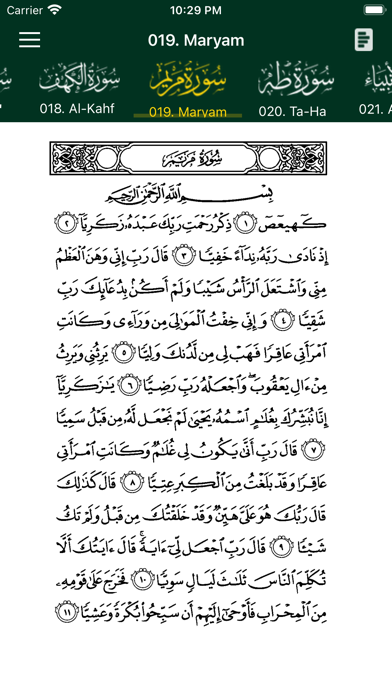 Carrier 10:29 PM
019. Maryam
سورة الكهف سورة مريم سورة طه
018. Al-Kahf 019. Maryam 020. Ta-Ha 021. A
سُورَةُ مَرْيَمَ
بِسْمِ اللَّهِ الرَّحْمَٰنِ الرَّحِيمِ
كٓهيعٓصٓ ١ ذِكْرُ رَحْمَتِ رَبِّكَ عَبْدَهُۥ زَكَرِيَّآ ٢
إِذْ نَادَىٰ رَبَّهُۥ نِدَآءً خَفِيًّا ٣ قَالَ رَبِّ إِنِّى وَهَنَ ٱلْعَظْمُ
مِنِّى وَٱشْتَعَلَ ٱلرَّأْسُ شَيْبًا وَلَمْ أَكُنۢ بِدُعَآئِكَ رَبِّ
شَقِيًّا ٤ وَإِنِّى خِفْتُ ٱلْمَوَٰلِىَ مِن وَرَآءِى وَكَانَتِ
ٱمْرَأَتِى عَاقِرًا فَهَبْ لِى مِن لَّدُنكَ وَلِيًّا ٥ يَرِثُنِى وَيَرِثُ
مِنْ ءَالِ يَعْقُوبَ ۖ وَٱجْعَلْهُ رَبِّ رَضِيًّا ٦ يَٰزَكَرِيَّآ
إِنَّا نُبَشِّرُكَ بِغُلَٰمٍ ٱسْمُهُۥ يَحْيَىٰ لَمْ نَجْعَل لَّهُۥ مِن قَبْلُ سَمِيًّا
٧ قَالَ رَبِّ أَنَّىٰ يَكُونُ لِى غُلَٰمٌ وَكَانَتِ ٱمْرَأَتِى
عَاقِرًا وَقَدْ بَلَغْتُ مِنَ ٱلْكِبَرِ عِتِيًّا ٨ قَالَ كَذَٰلِكَ
قَالَ رَبُّكَ هُوَ عَلَىَّ هَيِّنٌ وَقَدْ خَلَقْتُكَ مِن قَبْلُ وَلَمْ تَكُ
شَيْـًٔا ٩ قَالَ رَبِّ ٱجْعَل لِّىٓ ءَايَةً ۚ قَالَ ءَايَتُكَ أَلَّا
تُكَلِّمَ ٱلنَّاسَ ثَلَٰثَ لَيَالٍ سَوِيًّا ١٠ فَخَرَجَ عَلَىٰ قَوْمِهِۦ
مِنَ ٱلْمِحْرَابِ فَأَوْحَىٰٓ إِلَيْهِمْ أَن سَبِّحُوا۟ بُكْرَةً وَعَشِيًّا ١١